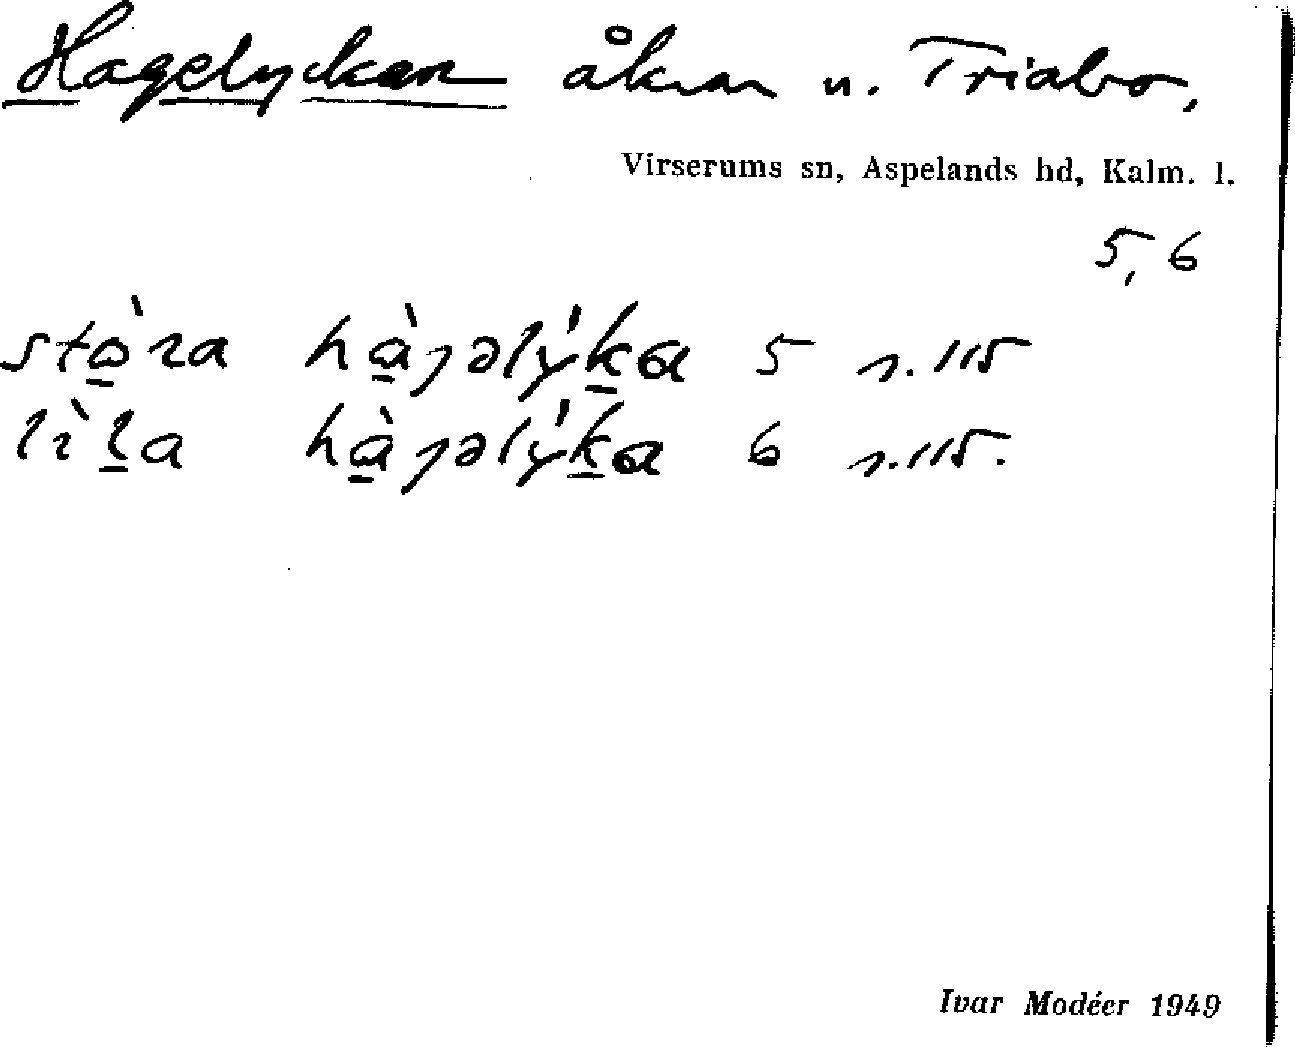 Hagelyckan åkrar u. Triabo,
Virserums sn, Aspelands hd, Kalm. l.
5, 6
stò̠ra hà̠jəly̍k̠a 5 s. 115
lìl̠a hà̠jəly̍k̠a 6 s. 115.
Ivar Modéer 1949